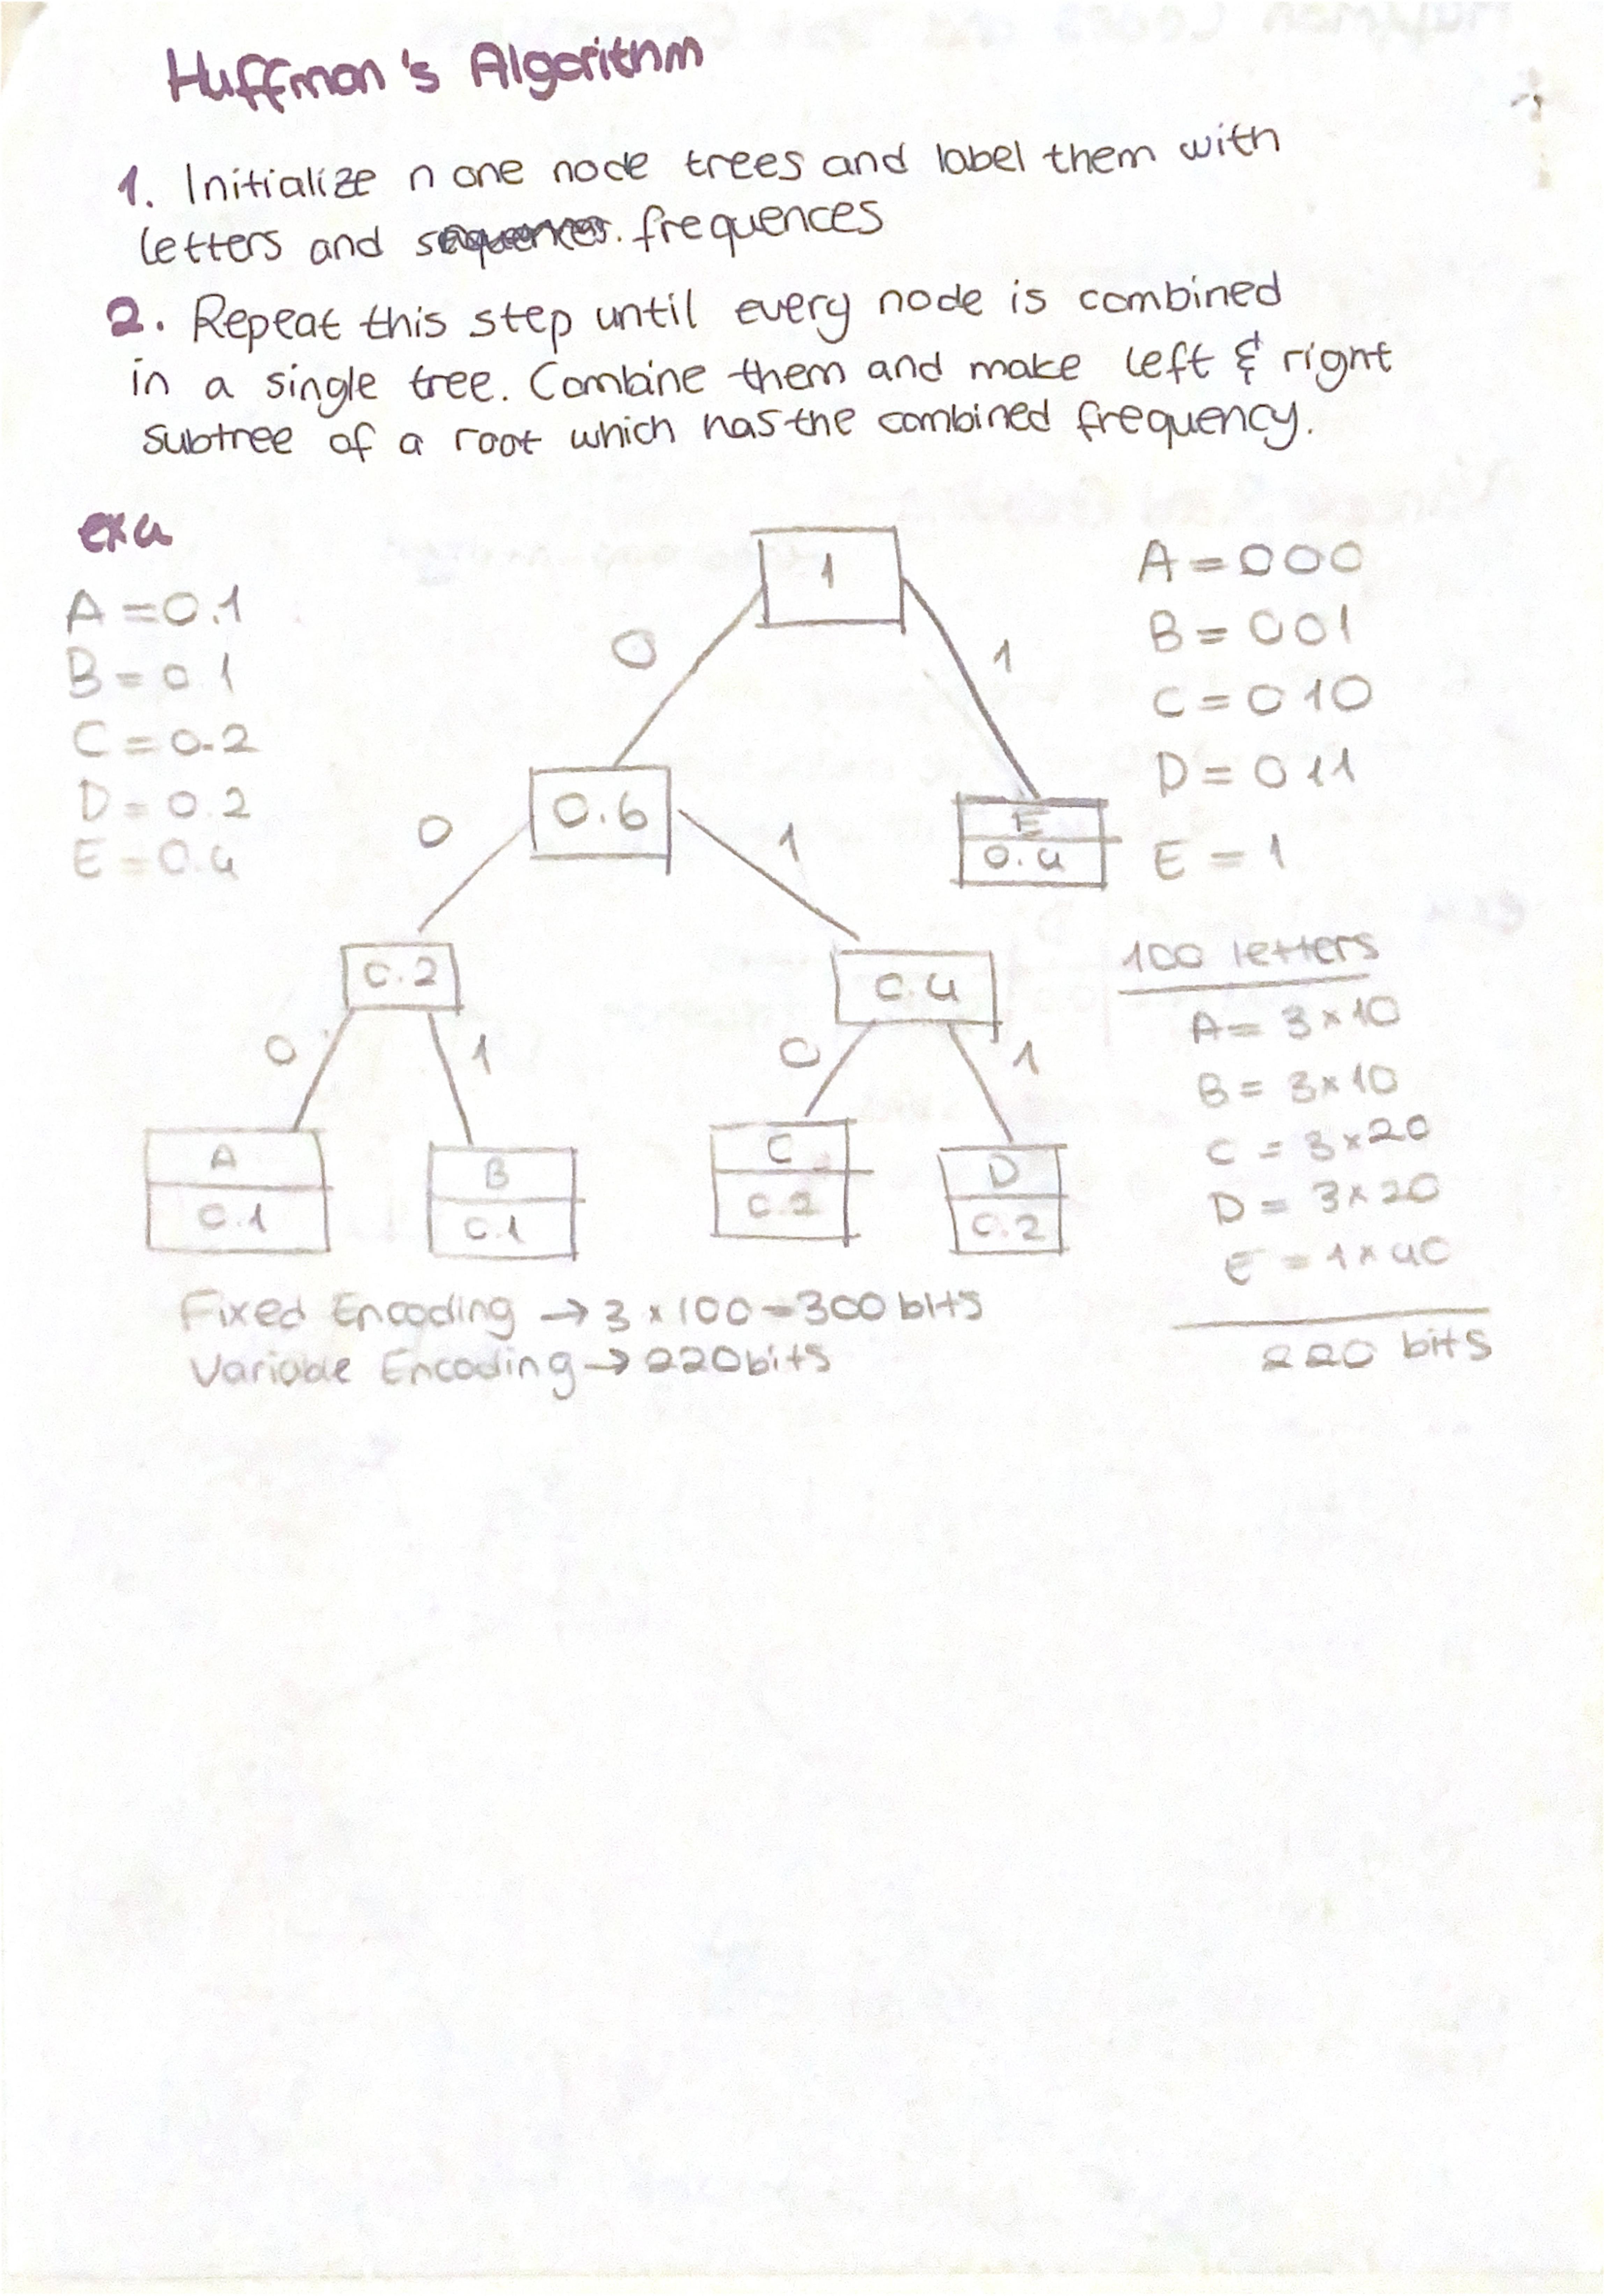 Huffman's Algorithm
1. Initialize n one node trees and label them with
letters and frequences
2. Repeat this step until every node is combined
in a single tree. Combine them and make left & right
subtree of a root which has the combined frequency.
exa
A = 0.1
B = 0.1
C = 0.2
D = 0.2
E = 0.4
1
0
1
0.6
E
0.4
0
1
0.2
0.4
0
1
0
1
A
0.1
B
0.1
C
0.2
D
0.2
A = 000
B = 001
C = 010
D = 011
E = 1
100 letters
A = 3 x 10
B = 3 x 10
C = 3 x 20
D = 3 x 20
E = 1 x 40
220 bits
Fixed Encoding → 3 x 100 = 300 bits
Variable Encoding → 220 bits